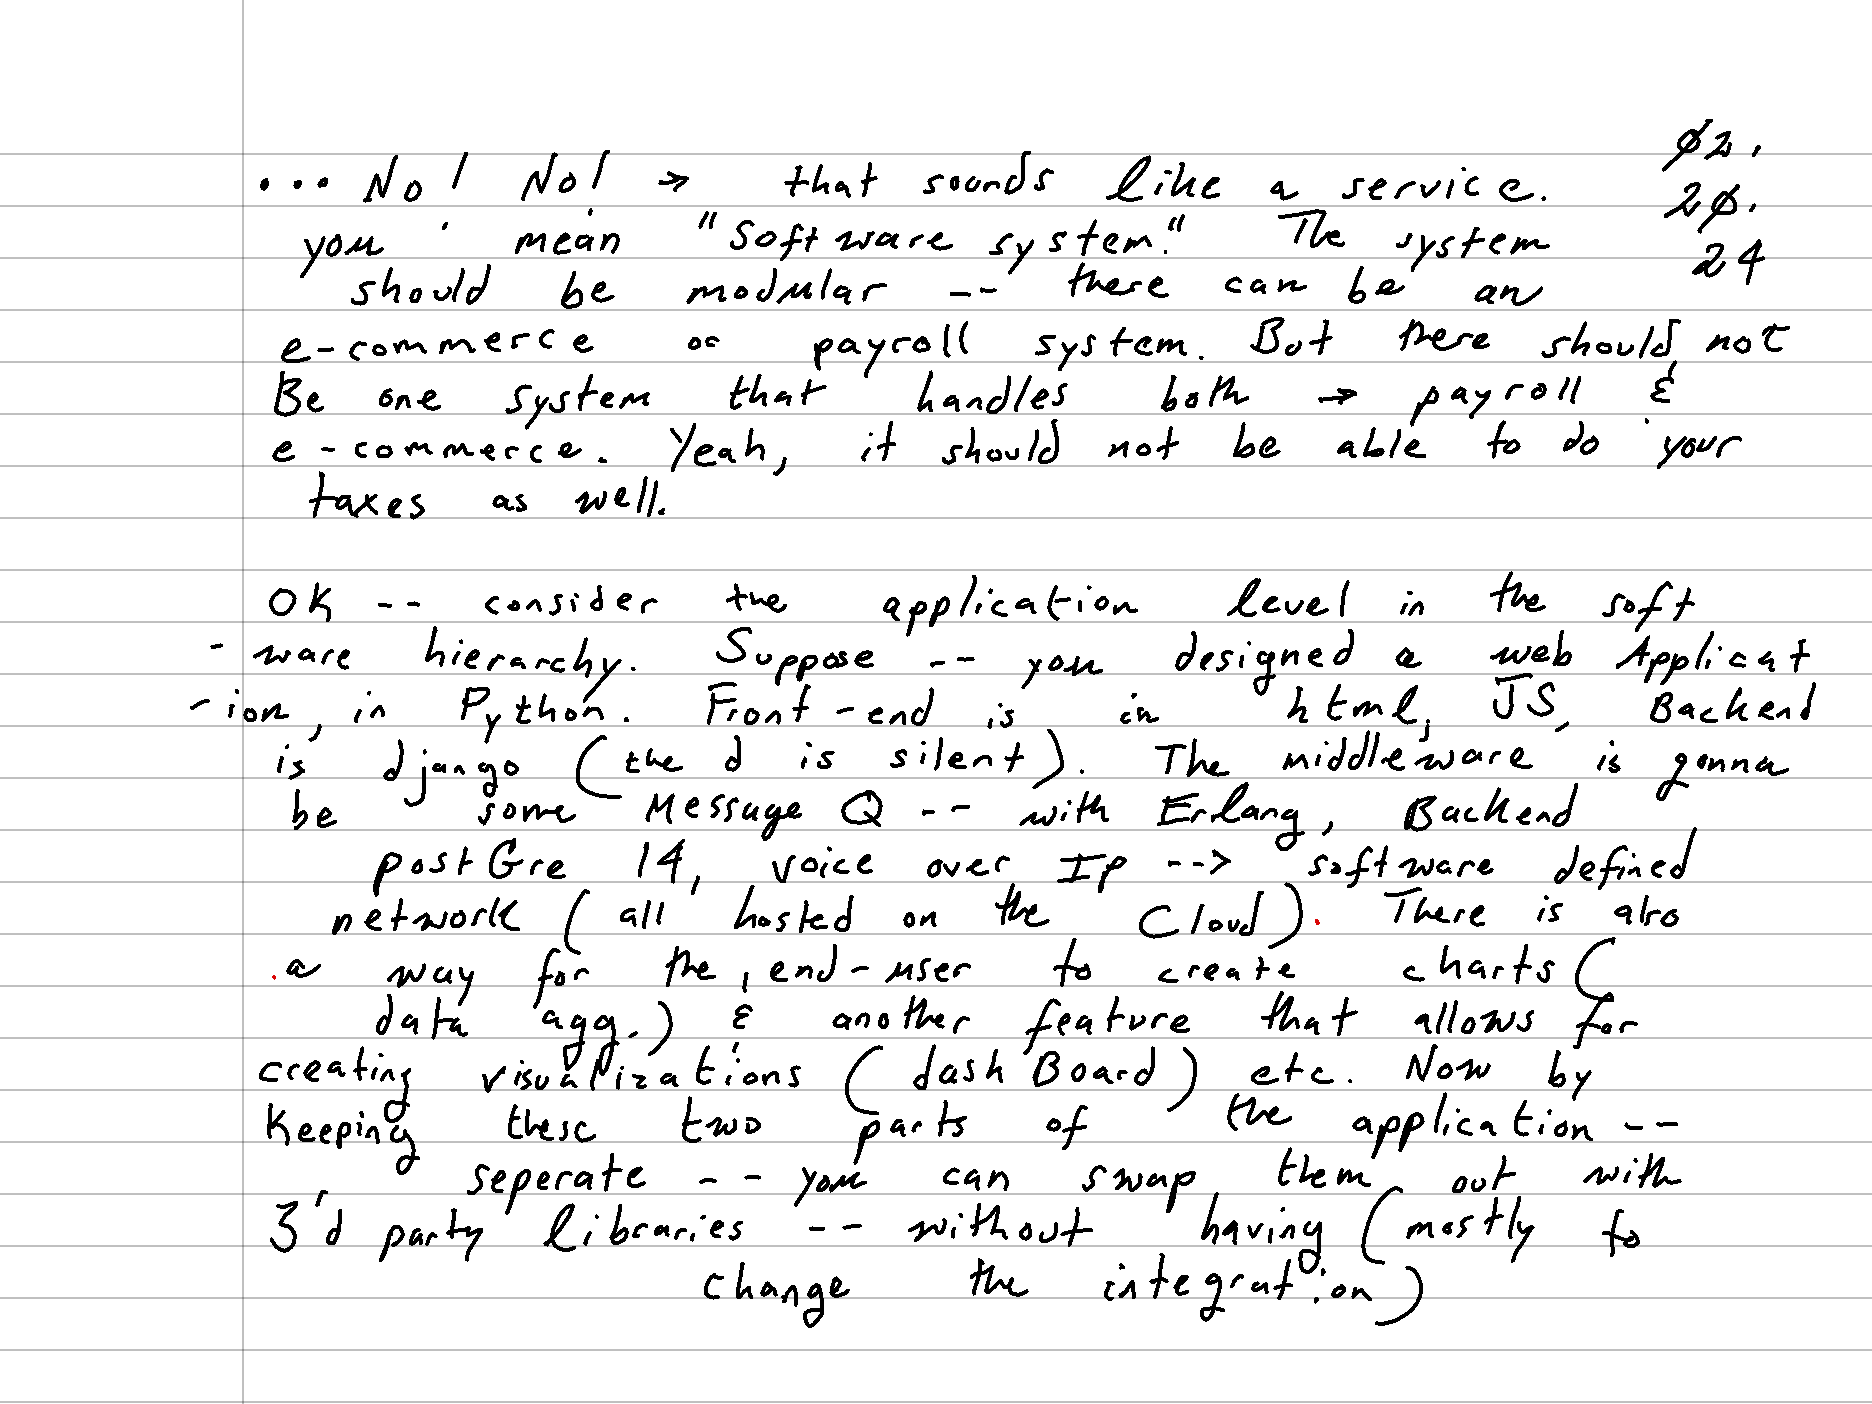 ø2.
... No! No! → that sounds like a service.
2ø.
you mean "Software system." The system
24
should be modular -- there can be an
e-commerce or payroll system. But there should not
Be one system that handles both → payroll &
e-commerce. Yeah, it should not be able to do your
taxes as well.
OK -- consider the application level in the soft
-ware hierarchy. Suppose -- you designed a web Applicat
-ion, in Python. Front-end is in html, JS, Backend
is django (the d is silent). The middleware is gonna
be some Message Q -- with Erlang, Backend
postGre 14, voice over Ip --> software defined
network (all hosted on the Cloud). There is also
a way for the end-user to create charts (
data agg.) & another feature that allows for
creating visualizations (dashBoard) etc. Now by
Keeping these two parts of the application --
seperate -- you can swap them out with
3'd party libraries -- without having (mostly to
change the integration)